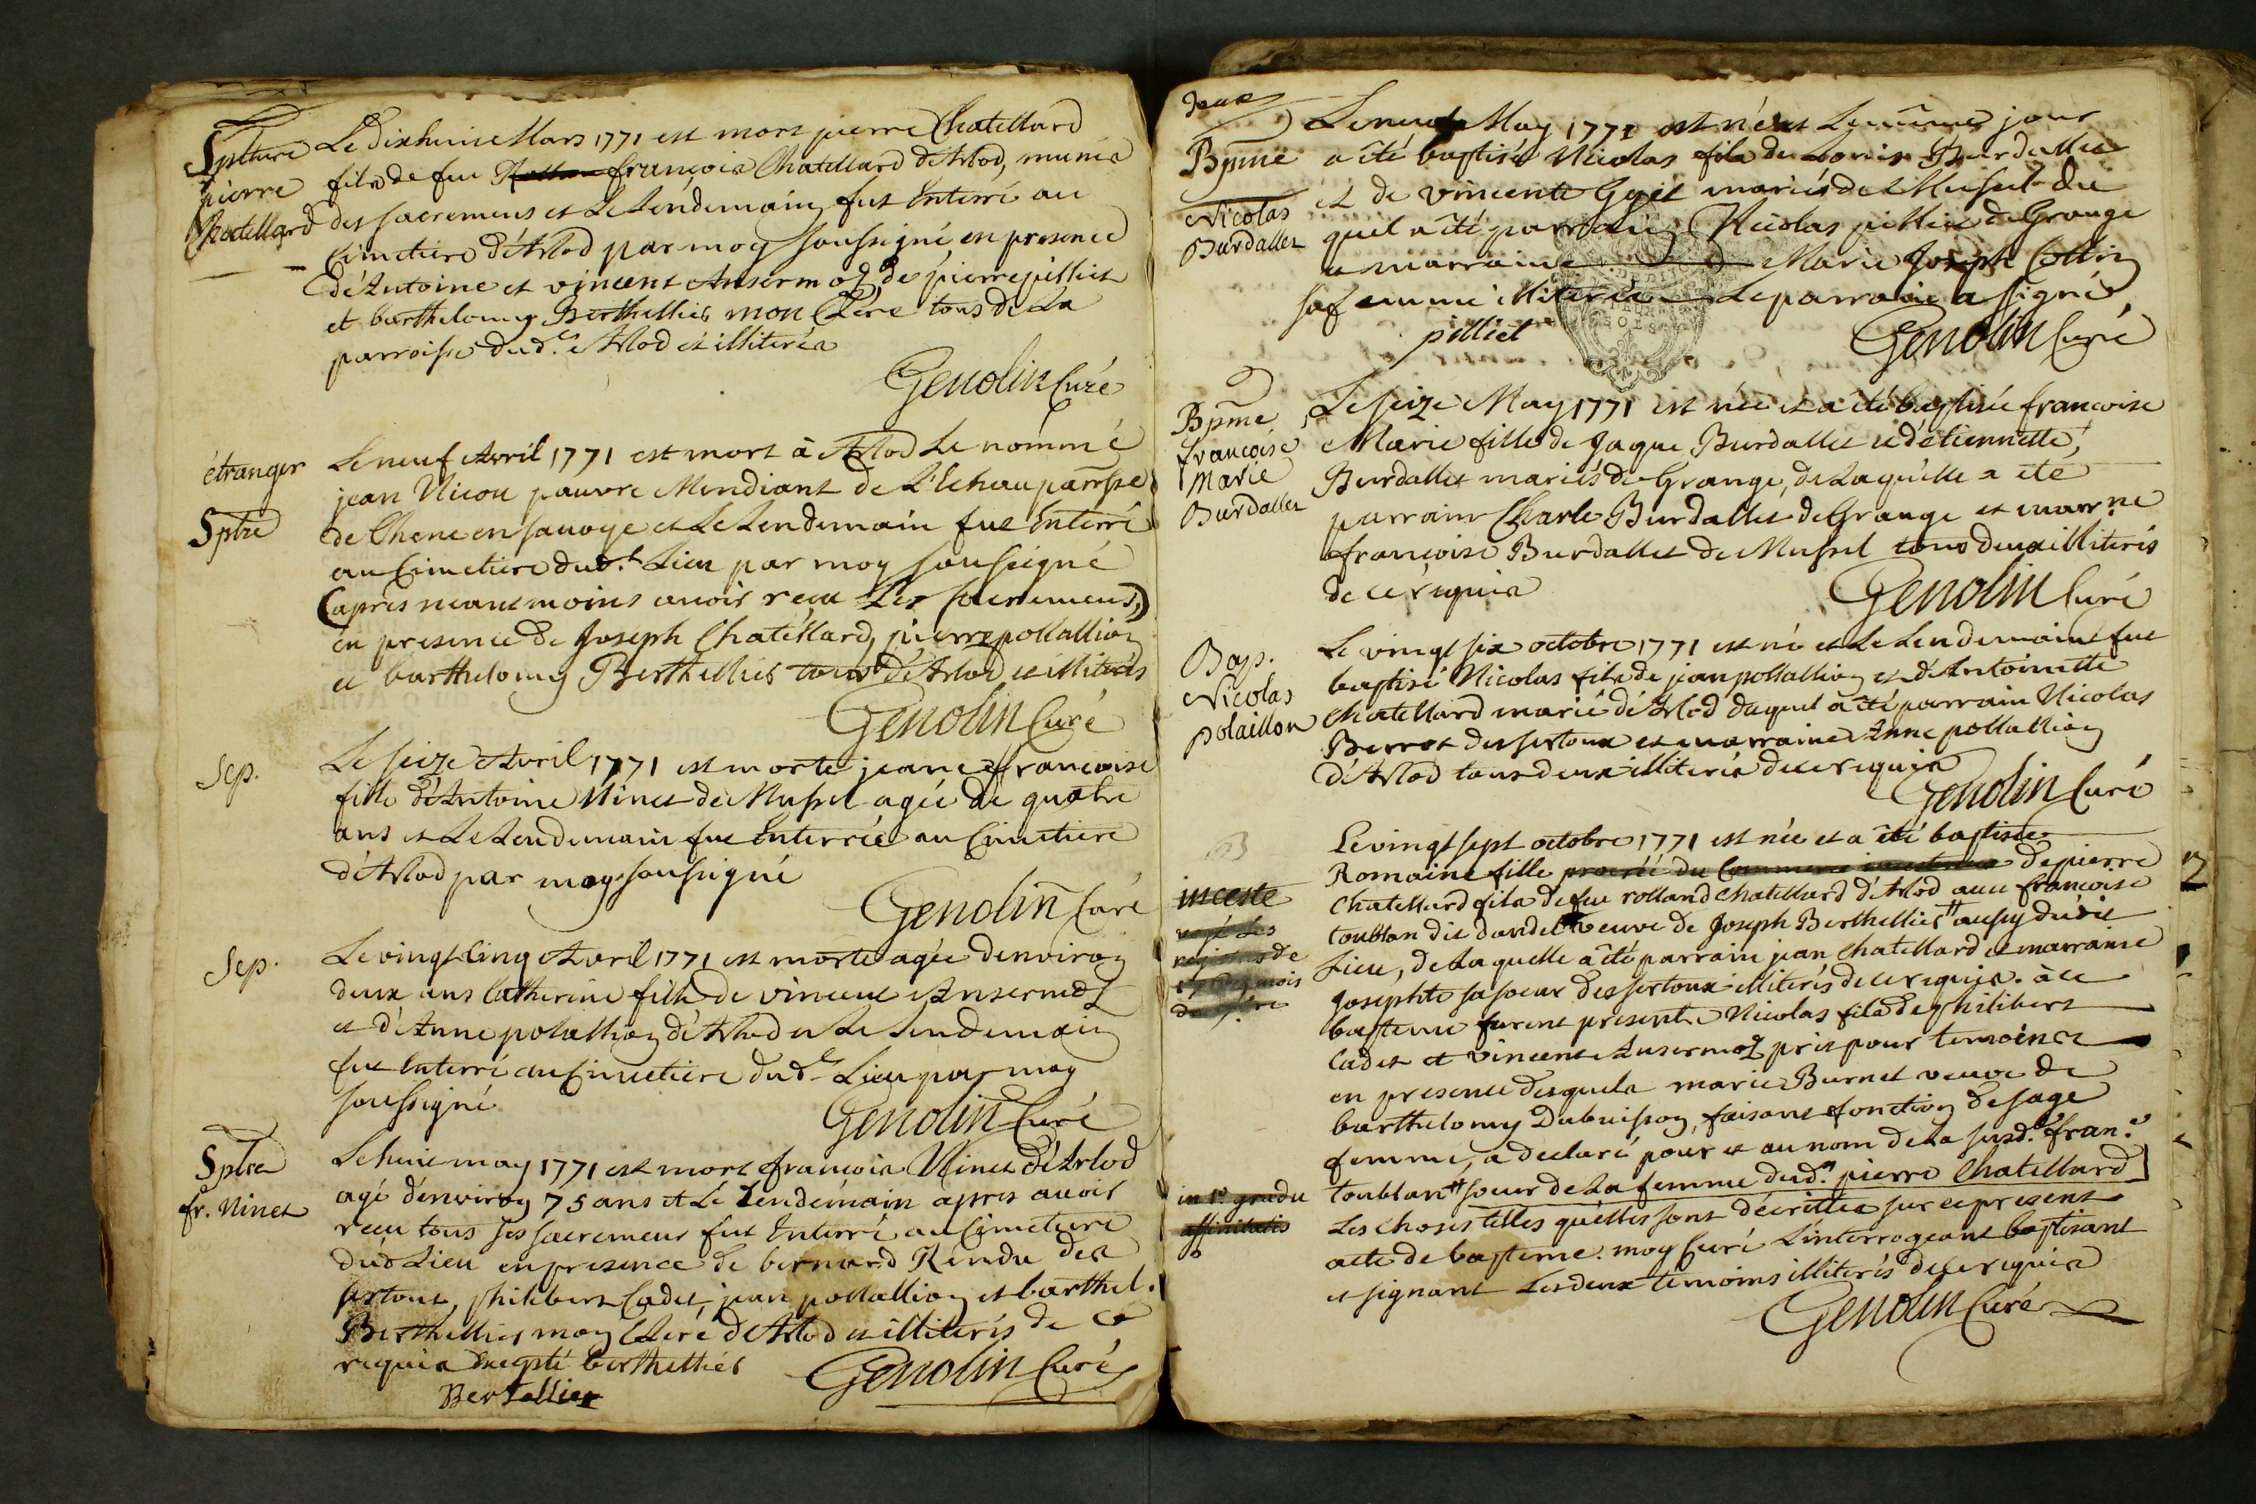 Spulture
pierre
Chatellard
Le Dixhuit Mars 1771 est mort pierre Chatellard
fils de feu françois Chatellard d'Arlod, muni
des sacremens et Le Lendemain fut Enterré au
Cimetiere d'Arlod par moy soussigné en presence
d'Antoine et vincent Ansermoz, de pierre pilliet
et barthelomy Berthellier mon Clerc tous de La
parroisse dud.t Arlod et illiterés
Genolin Curé
étranger
Sptre
Le neuf Avril 1771 est mort à Arlod Le nommé
jean Nicou pauvre Mendiant de parrsse
de Chene en savoye et Le Lendemain fut Enterré
au Cimetiere dud.t Lieu par moy soussigné
(apres neantmoins avoir reçu Les sacremens)
en presence de Joseph Chatellard, pierre pollallion
et barthelomy Berthellier tous d'Arlod et illiterés
Genolin Curé
Sep.
Le seize Avril 1771 est morte jeane françoise
fille d'Antoine Ninet de Mussel agée de quatre
ans et Le Lendemain fut Enterrée au Cimetiere
d'Arlod par moy soussigné
Genolin Curé
Sep.
Le vingt Cinq Avril 1771 est morte agée d'environ
deux ans Catherine fille de vincent Ansermoz
et d'Anne polallion d'Arlod et Le Lendemain
fut Enterré au Cimetiere dud.t Lieu par moy
soussigné
Genolin Curé
Sptre
fr. Ninet
Le huit may 1771 est mort françois Ninet d'Arlod
agé d'environ 75 ans et Le Lendemain apres avoir
reçu tous ses sacremens fut Enterré au Cimetiere
dud Lieu en presence de bernard Rendu des
sertoux, philibert Cadet, jean pollallion et barthel.
Berthellier moy Clerc d'Arlod et illiterés de ce
requis Excepté berthellier
Genolin Curé
Bertellier
Bpme
Nicolas
Burdallet
Le neuf May 1771 est né et Le même jour
a été baptisé Nicolas fils de Louis Burdallet
et de vincente Gyet mariés de Mussel du
quel a été parrain Nicolas pilliet de Grange
et marraine Marie Joseph Collin
sa femme illiterée Le parrain a signé
pilliet
Genolin Curé
Bpme
françoise
Marie
Burdallet
Le seize May 1771 est née et a été baptisée françoise
Marie fille de Jaque Burdallet et d'étiennette
Burdallet mariés de Grange, de Laquelle a été
parrain Charle Burdallet de Grange et marrne
françoise Burdallet de Mussel tous deux illiterés
de ce requis
Genolin Curé
Bap.
Nicolas
polaillon
Le vingt six octobre 1771 est né et Le Lendemain fut
baptisé Nicolas fils de jean pollallion et d'Antoinette
Chatellard marié d'Arlod duquel a été parrain Nicolas
Berrot des sertoux et marraine Anne pollallion
d'Arlod tous deux illiterés de ce requis
Genolin Curé
inceste
Le vingt sept octobre 1771 est née et a été baptisée
Romaine fille procréé du Commerce incestueux de pierre
Chatellard fils de feu rolland Chatellard d'Arlod avec françoise
toublan dit dandel veuve de Joseph Berthellier # aussy dudit
Lieu, de Laquelle a été parrain jean Chatellard et marraine
Josephte sa soeur des sertoux illiterés de ce requis. à ce
bapteme furent presents Nicolas fils de philibert
Cadet et vincent Ansermoz pris pour temoins
en presence desquels marie Burnet veuve de
barthelomy Dubuisson, faisant fonction de sage
femme, a declaré pour et au nom de La susd.e fran.e
in 1º. gradu
affinitatis
toublan # soeur de La femme dud.t pierre Chatellard
Les choses telles qu'elles sont décrittes sur ce present
acte de bapteme. moy Curé L'interrogeant baptisant
et signant Les deux témoins illiterés de ce requis
Genolin Curé